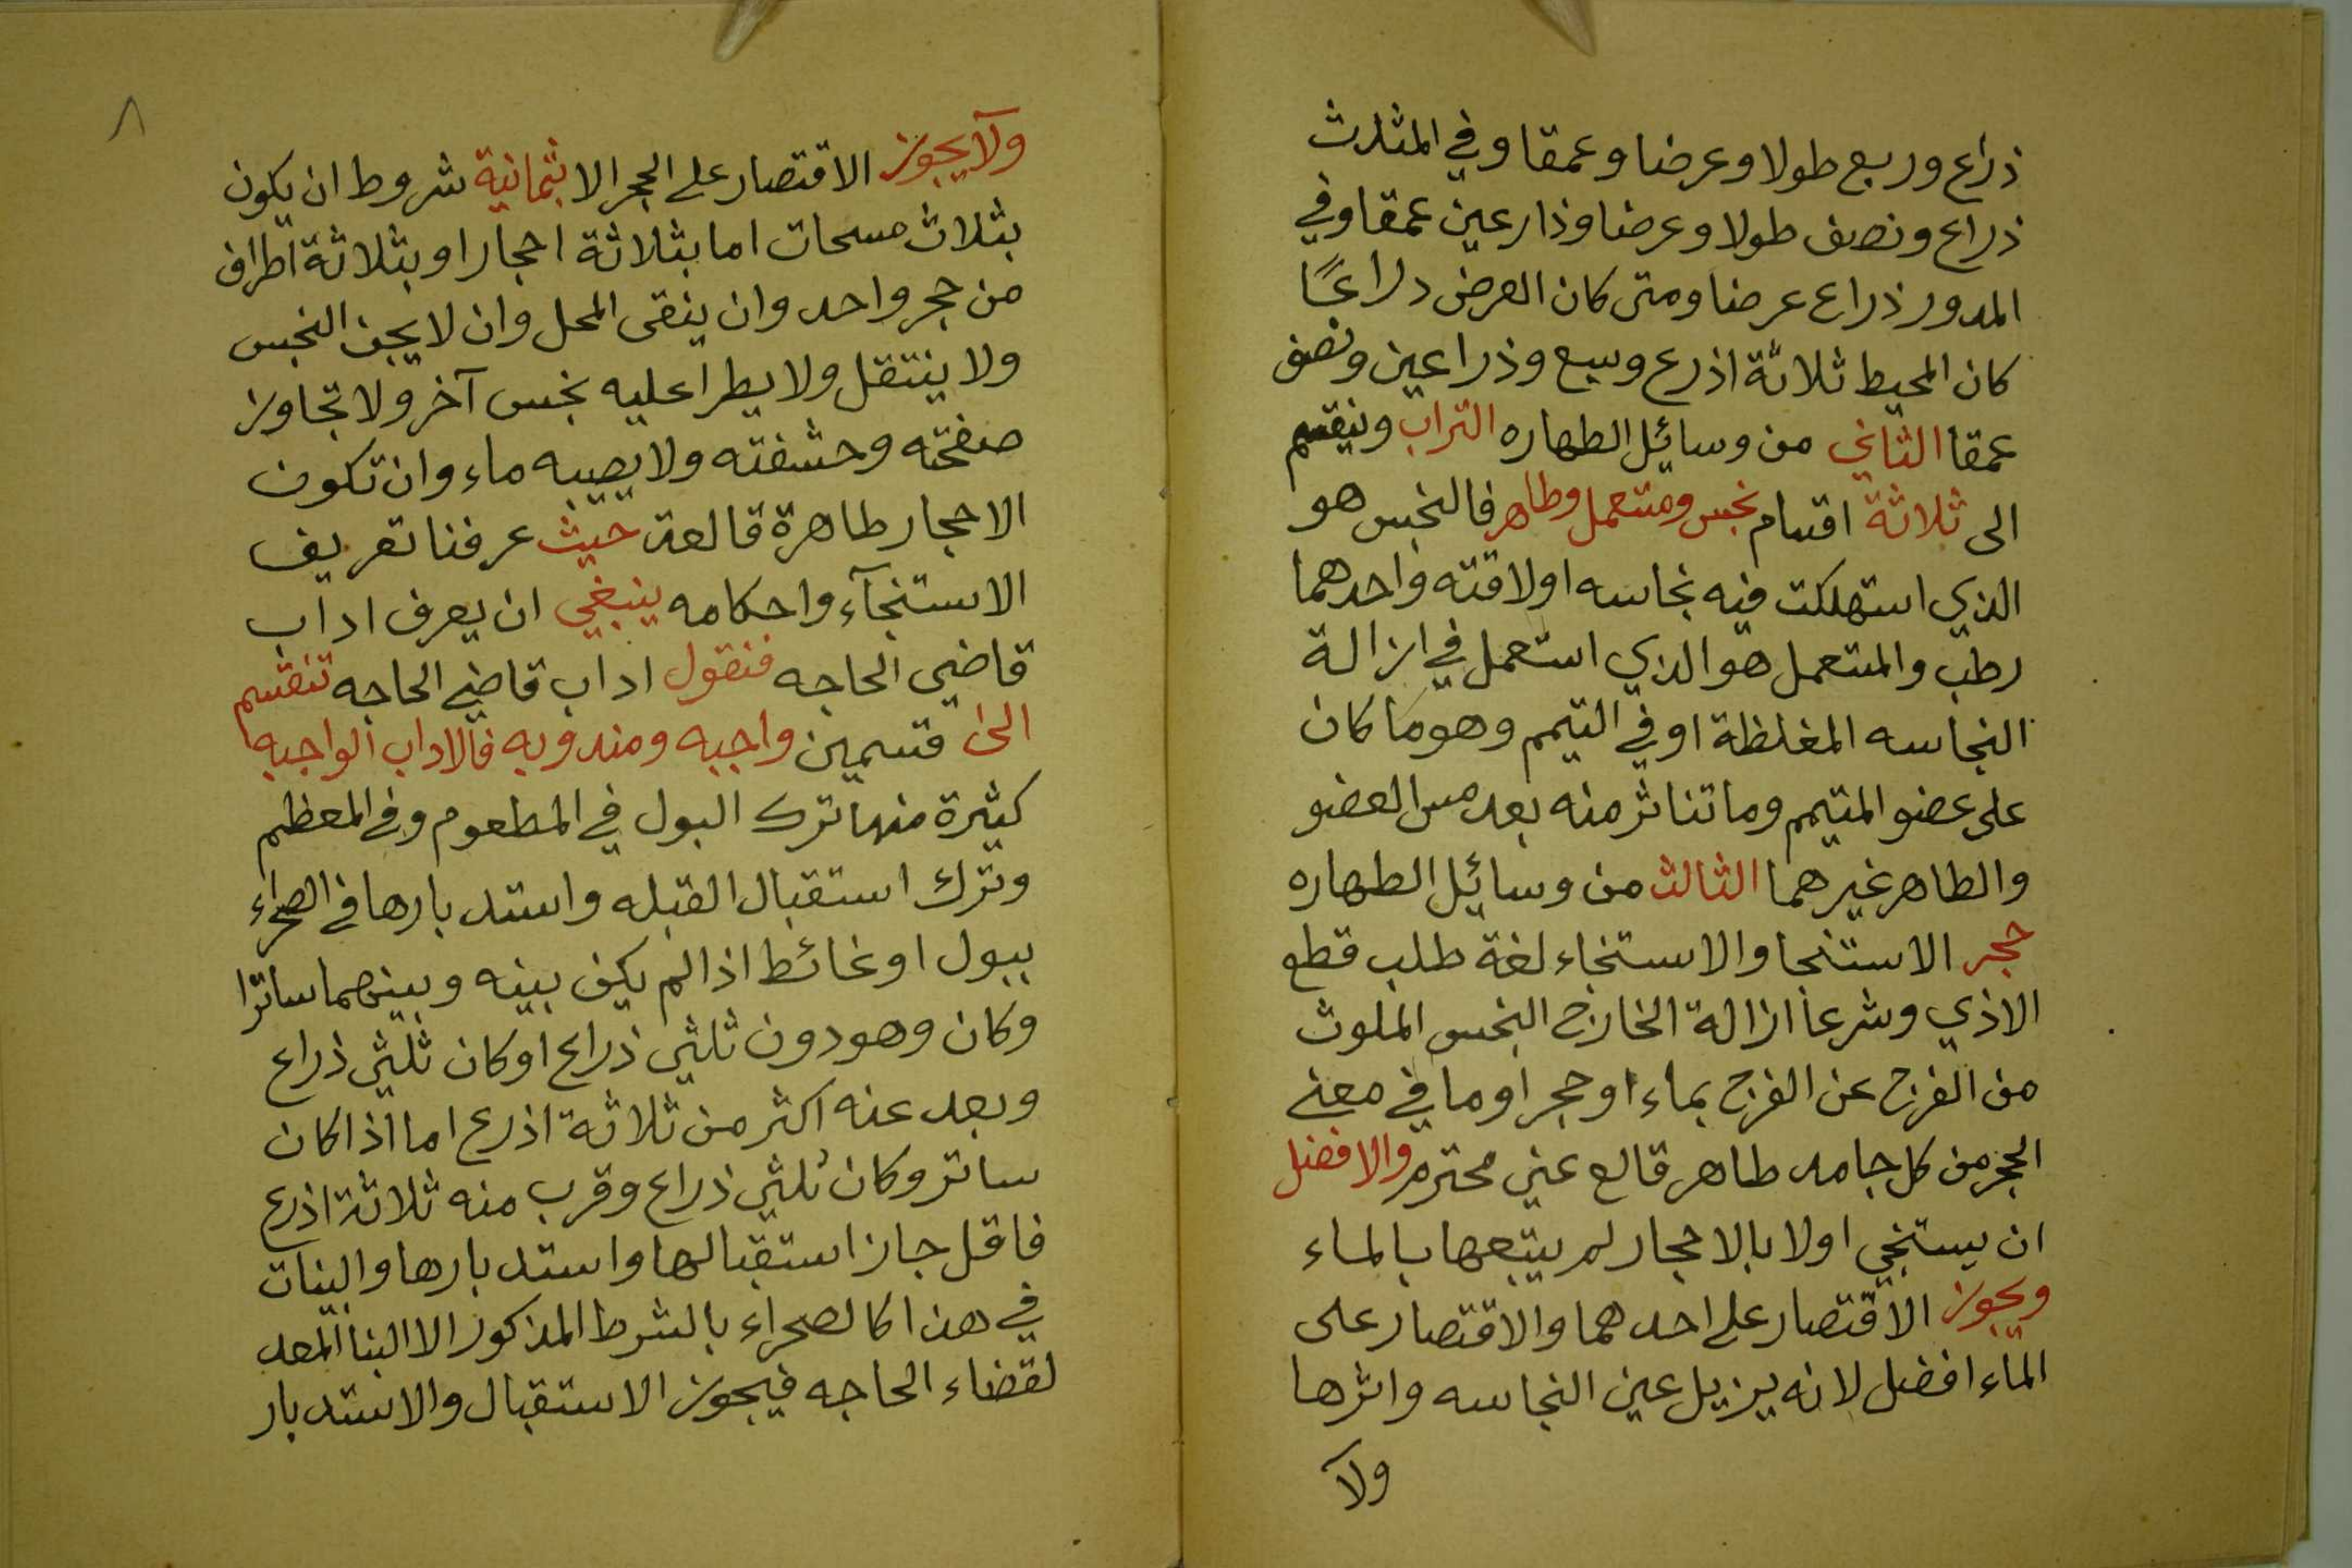 ذراع وربع طولا وعرضا وعمقا وفي المثلث
ذراع ونصف طولا وعرضا وذارعين عمقا وفي
المدور ذراع عرضا ومتى كان العرض ذراعًا
كان المحيط ثلاثة اذرع وسبع وذراعين ونصف
عمقا الثاني من وسائل الطهاره التراب وينقسم
الى ثلاثة اقسام نجس ومستعمل وطاهر فالنجس هو
الذي استهلكت فيه نجاسه اولاقته واحدهما
رطب والمستعمل هو الذي استعمل في ازالة
النجاسه المغلظة او في التيمم وهو ما كان
على عضو المتيمم وما تناثر منه بعد مس العضو
والطاهر غيرهما الثالث من وسائل الطهاره
حجر الاستنجا والاستنجاء لغة طلب قطع
الاذي وشرعا ازالة الخارج النجس الملوث
من الفرج عن الفرج بماء او حجر او ما في معنى
الحجر من كل جامد طاهر قالع غير محترم والافضل
ان يستنجي اولا بالاحجار ثم يتبعها بالماء
ويجوز الاقتصار على احدهما والاقتصار على
الماء افضل لانه يزيل عين النجاسه واثرها
ولا
٨
ولا يجوز الاقتصار على الحجر الا بثمانية شروط ان يكون
بثلاث مسحات اما بثلاثة احجار او بثلاثة اطراف
من حجر واحد وان ينقى المحل وان لا يجف النجس
ولا ينتقل ولا يطرا عليه نجس آخر ولا تجاوز
صفحته وحشفته ولا يصيبه ماء وان تكون
الاحجار طاهرة قالعة حيث عرفنا تعريف
الاستنجآء واحكامه ينبغي ان يعرف اداب
قاضي الحاجه فنقول اداب قاضي الحاجه تنقسم
الى قسمين واجبه ومندوبه فالاداب الواجبه
كثيرة منها ترك البول في المطعوم وفي المعظم
وترك استقبال القبله واستدبارها في الصحراء
ببول او غائط اذا لم يكن بينه وبينهما ساترا
وكان وهو دون ثلثي ذراع او كان ثلثي ذراع
وبعد عنه اكثر من ثلاثة اذرع اما اذا كان
ساتر وكان ثلثي ذراع وقرب منه ثلاثة اذرع
فاقل جاز استقبالها واستدبارها والبنات
في هذا كالصحراء بالشرط المذكور الا البنا المعد
لقضاء الحاجه فيجوز الاستقبال والاستدبار